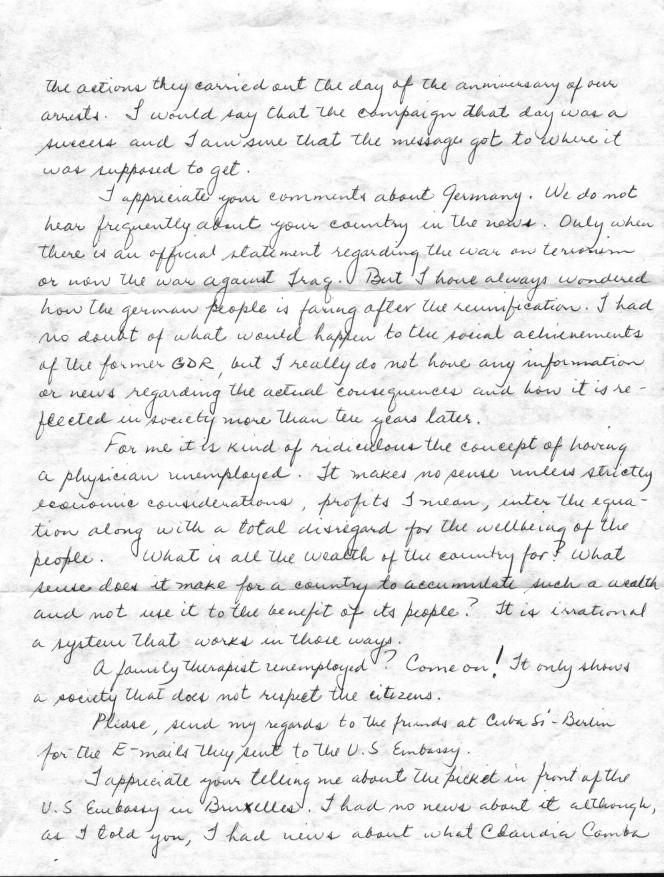 the actions they carried out the day of the anniversary of our
arrests. I would say that the campaign that day was a
success and I am sure that the message got to where it
was supposed to get.
I appriciate your comments about Germany. We do not
hear frequently about your country in the news. Only when
there is an official statement regarding the war on terrorism
or now the war against Iraq. But I have always wondered
how the german people is faring after the reunification. I had
no doubt of what would happen to the social achievements
of the former GDR, but I really do not have any information
or news regarding the actual consequences and how it is re-
flected in society more than ten years later.
For me it is kind of ridiculous the concept of having
a physician unemployed. It makes no sense unless strictly
economic considerations, profits I mean, enter the equa-
tion along with a total disregard for the wellbeing of the
people. What is all the wealth of the country for? What
sense does it make for a country to accumulate such a wealth
and not use it to the benefit of its people? It is irrational
a system that works in those ways.
A family therapist unemployed? Come on! It only shows
a society that does not respect the citizens.
Please, send my regards to the friends at Cuba Sí-Berlin
for the E-mails they sent to the U.S Embassy.
I appriciate your telling me about the picket in front of the
U.S Embassy in Bruxelles. I had no news about it although,
as I told you, I had news about what Claudia Camba